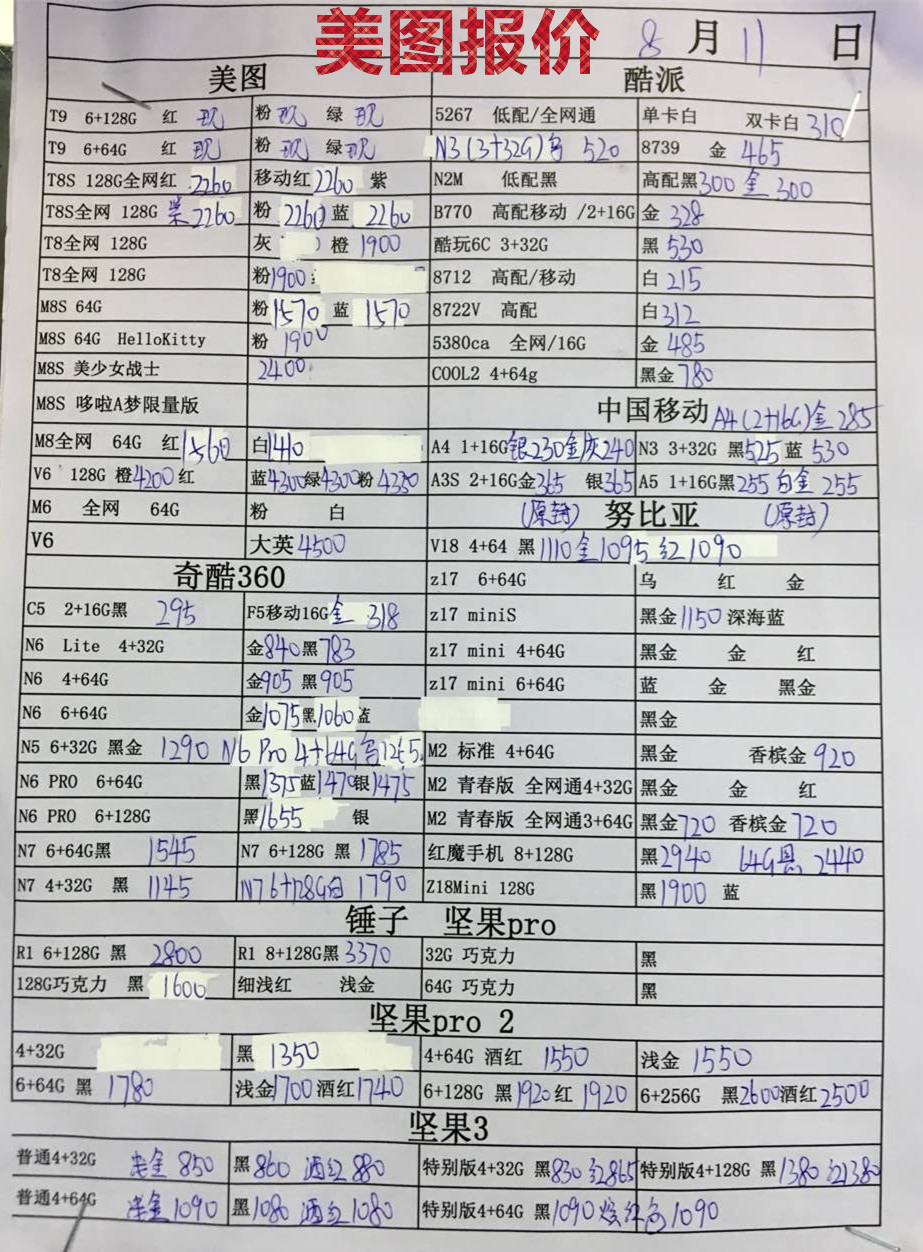 美图报价
8月11日
美图 酷派
T9 6+128G 红 现 粉 现 绿 现 5267 低配/全网通 单卡白 双卡白 310
T9 6+64G 红 现 粉 现 绿 现 N3(3+32G)乌 520 8739 金 465
T8S 128G全网红 2260 移动红 2260 紫 N2M 低配黑 高配黑300 金 300
T8S全网 128G 紫2260 粉 2260 蓝 2260 B770 高配移动 /2+16G 金 328
T8全网 128G 灰 橙 1900 酷玩6C 3+32G 黑 530
T8全网 128G 粉1900 8712 高配/移动 白 215
M8S 64G 粉 1570 蓝 1570 8722V 高配 白 312
M8S 64G HelloKitty 粉 1900 5380ca 全网/16G 金 485
M8S 美少女战士 2400 COOL2 4+64g 黑金 780
M8S 哆啦A梦限量版 中国移动 A4(2+16G)金 285
M8全网 64G 红1560 白1410 A4 1+16G银230金灰240 N3 3+32G 黑525 蓝 530
V6 128G 橙4200红 蓝4300绿4300粉4230 A3S 2+16G金365 银365 A5 1+16G黑255 白金 255
M6 全网 64G 粉 白 (原封) 努比亚 (原封)
V6 大英4500 V18 4+64 黑1110金1095红1090
奇酷360 z17 6+64G 乌 红 金
C5 2+16G黑 295 F5移动16G金 318 z17 miniS 黑金1150深海蓝
N6 Lite 4+32G 金840黑783 z17 mini 4+64G 黑金 金 红
N6 4+64G 金905 黑905 z17 mini 6+64G 蓝 金 黑金
N6 6+64G 金1075黑1060蓝 黑金
N5 6+32G 黑金 1290 N6 Pro 4+64G 1265 M2 标准 4+64G 黑金 香槟金 920
N6 PRO 6+64G 黑1375蓝1470银1475 M2 青春版 全网通4+32G 黑金 金 红
N6 PRO 6+128G 黑1655 银 M2 青春版 全网通3+64G 黑金720 香槟金 720
N7 6+64G黑 1545 N7 6+128G 黑 1785 红魔手机 8+128G 黑2940 64G黑 2440
N7 4+32G 黑 1145 N7 6+128G白 1790 Z18Mini 128G 黑1900 蓝
锤子 坚果pro
R1 6+128G 黑 2800 R1 8+128G黑3370 32G 巧克力 黑
128G巧克力 黑 1600 细浅红 浅金 64G 巧克力 黑
坚果pro 2
4+32G 黑 1350 4+64G 酒红 1550 浅金 1550
6+64G 黑 1780 浅金1700酒红1740 6+128G 黑1920红 1920 6+256G 黑2600酒红2500
坚果3
普通4+32G 浅金 850 黑860 酒红 880 特别版4+32G 黑830红865 特别版4+128G 黑1380红1380
普通4+64G 浅金1090 黑1080 酒红1080 特别版4+64G 黑1090炫红色1090